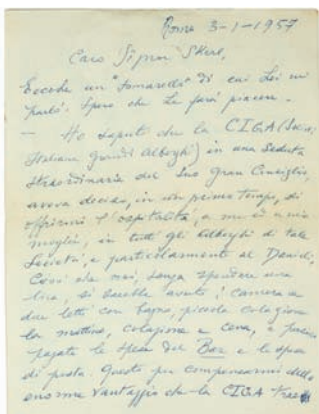 Roma 3-1-1957
Caro Signor Skerl,
Eccole un "Somarello" di cui Lei mi
parlò. Spero che Le farà piacere.
— Ho saputo che la CIGA (Società
Italiana grandi Alberghi) in una seduta
straordinaria del Suo gran Consiglio,
aveva deciso, in un primo tempo, di
offrirmi l'ospitalità, a me ed a mia
moglie, in tutti gli Alberghi di tale
Società, e particolarmente al Danieli,
Così che noi, senza spendere una
lira, si sarebbe avuto: camera a
due letti con bagno, piccola colazione
la mattina, colazione e cena, e
pagate le spese del Bar e le spese
di posta. Questo per compensarmi dello
enorme vantaggio che la CIGA